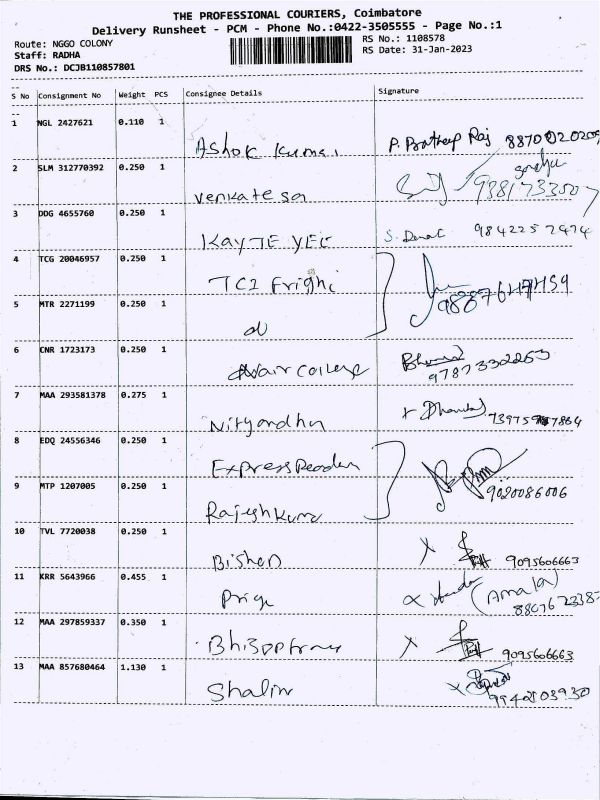 THE PROFESSIONAL COURIERS, Coimbatore
Delivery Runsheet - PCM - Phone No.:0422-3505555 - Page No.:1
Route: NGGO COLONY
RS No.: 1108578
Staff: RADHA
RS Date: 31-Jan-2023
DRS No.: DCJB110857801
S No Consignment No Weight PCS Consignee Details Signature
1 NGL 2427621 0.110 1 Ashok Kumar P. Pratheep Raj
2 SLM 312770392 0.250 1 Venkatesan
3 DDG 4655760 0.250 1 KAYTE YEE 9842257474
4 TCG 20046957 0.250 1 TCI Frighi
5 MTR 2271199 0.250 1 do
6 CNR 1723173 0.250 1 9787332253
7 MAA 293581378 0.275 1
8 EDQ 24556346 0.250 1 Express
9 MTP 1207005 0.250 1 Rajesh Kumar 9020086006
10 TVL 7720038 0.250 1 Bishon X 9095606663
11 KRR 5643966 0.455 1 Priya (Amala)
12 MAA 297859337 0.350 1 X 9095606663
13 MAA 857680464 1.130 1 Shalini X